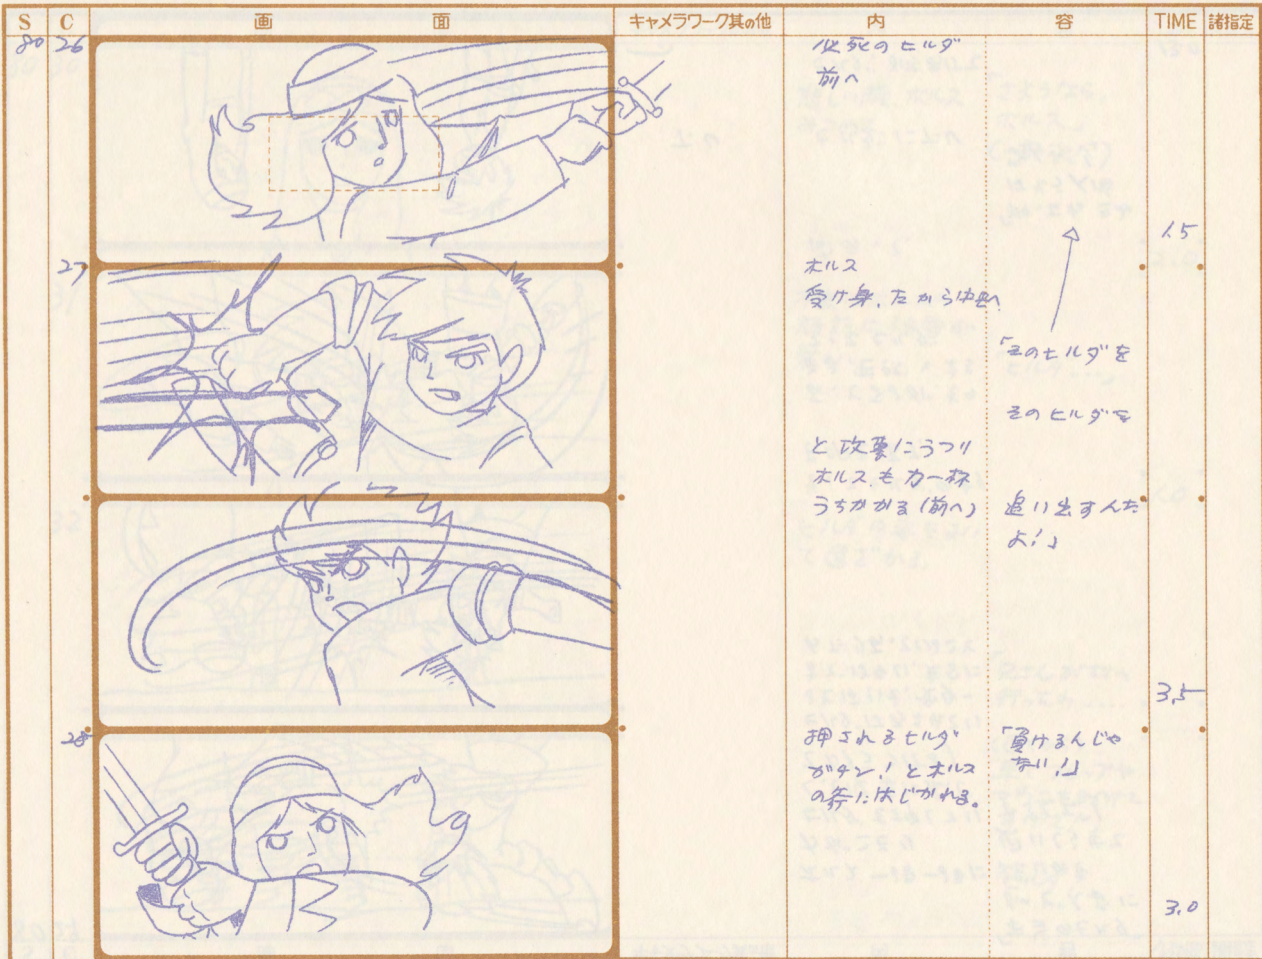 S C 画 面 キャメラワーク其の他 内 容 TIME 諸指定
80 26
必死のヒルダ
前へ
1.5
27
ホルス
受け身、だから中央へ
「そのヒルダを
そのヒルダを
と攻撃にうつり
ホルスも力一杯
うちかかる(前へ)
追い出すんだ
よ!」
3.5
28
押されるヒルダ
ガチン!とホルス
の斧にはじかれる。
「負けるんじゃ
ない!」
3.0